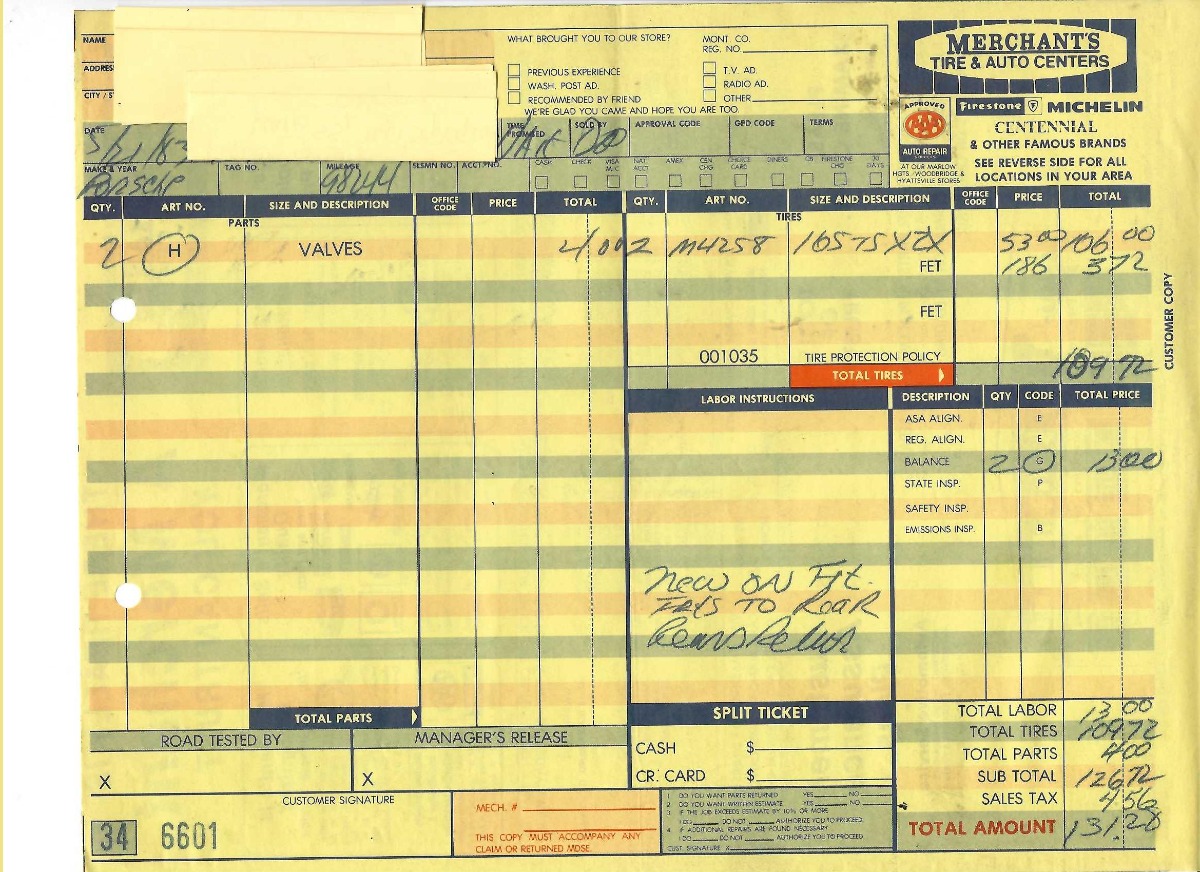 NAME
ADDRES
CITY / S
WHAT BROUGHT YOU TO OUR STORE?
PREVIOUS EXPERIENCE
WASH. POST AD.
RECOMMENDED BY FRIEND
MONT. CO.
REG. NO.
T.V. AD.
RADIO AD.
OTHER
WE'RE GLAD YOU CAME AND HOPE YOU ARE TOO.
MERCHANT'S
TIRE & AUTO CENTERS
APPROVED
AAA
AUTO REPAIR
SERVICES
AT OUR MARLOW
HGTS., WOODBRIDGE &
HYATTSVILLE STORES
Firestone MICHELIN
CENTENNIAL
& OTHER FAMOUS BRANDS
SEE REVERSE SIDE FOR ALL
LOCATIONS IN YOUR AREA
DATE TIME PROMISED SOLD BY APPROVAL CODE GPD CODE TERMS
5/21/82
MAKE & YEAR TAG NO. MILEAGE SLSMN NO. ACCT. NO. CASH CHECK VISA M/C NAT ACCT AMEX CEN CHG CHOICE CARD DINERS CB FIRESTONE CHG 30 DAYS
PORSCHE 98244
QTY. ART NO. SIZE AND DESCRIPTION OFFICE CODE PRICE TOTAL QTY. ART NO. SIZE AND DESCRIPTION OFFICE CODE PRICE TOTAL
PARTS TIRES
2 H VALVES 4 00 2 M4258 165 75 XZX 53 00 106 00
FET 186 3 72
FET
001035 TIRE PROTECTION POLICY
TOTAL TIRES 109 72
LABOR INSTRUCTIONS DESCRIPTION QTY CODE TOTAL PRICE
ASA ALIGN. E
REG. ALIGN. E
BALANCE 2 G 13 00
STATE INSP. P
SAFETY INSP.
EMISSIONS INSP. B
New ON Frt.
TO Rear
TOTAL PARTS
SPLIT TICKET
CASH $
CR. CARD $
TOTAL LABOR 13 00
TOTAL TIRES 109 72
TOTAL PARTS 4 00
SUB TOTAL 126 72
SALES TAX 4 56
TOTAL AMOUNT 131.28
ROAD TESTED BY MANAGER'S RELEASE
X X
CUSTOMER SIGNATURE
34 6601
MECH. #
THIS COPY MUST ACCOMPANY ANY
CLAIM OR RETURNED MDSE.
1. DO YOU WANT PARTS RETURNED YES NO
2. DO YOU WANT WRITTEN ESTIMATE YES NO
3. IF THE JOB EXCEEDS ESTIMATE BY 10% OR MORE
I DO DO NOT AUTHORIZE YOU TO PROCEED.
4. IF ADDITIONAL REPAIRS ARE FOUND NECESSARY
I DO DO NOT AUTHORIZE YOU TO PROCEED
CUST. SIGNATURE X
CUSTOMER COPY